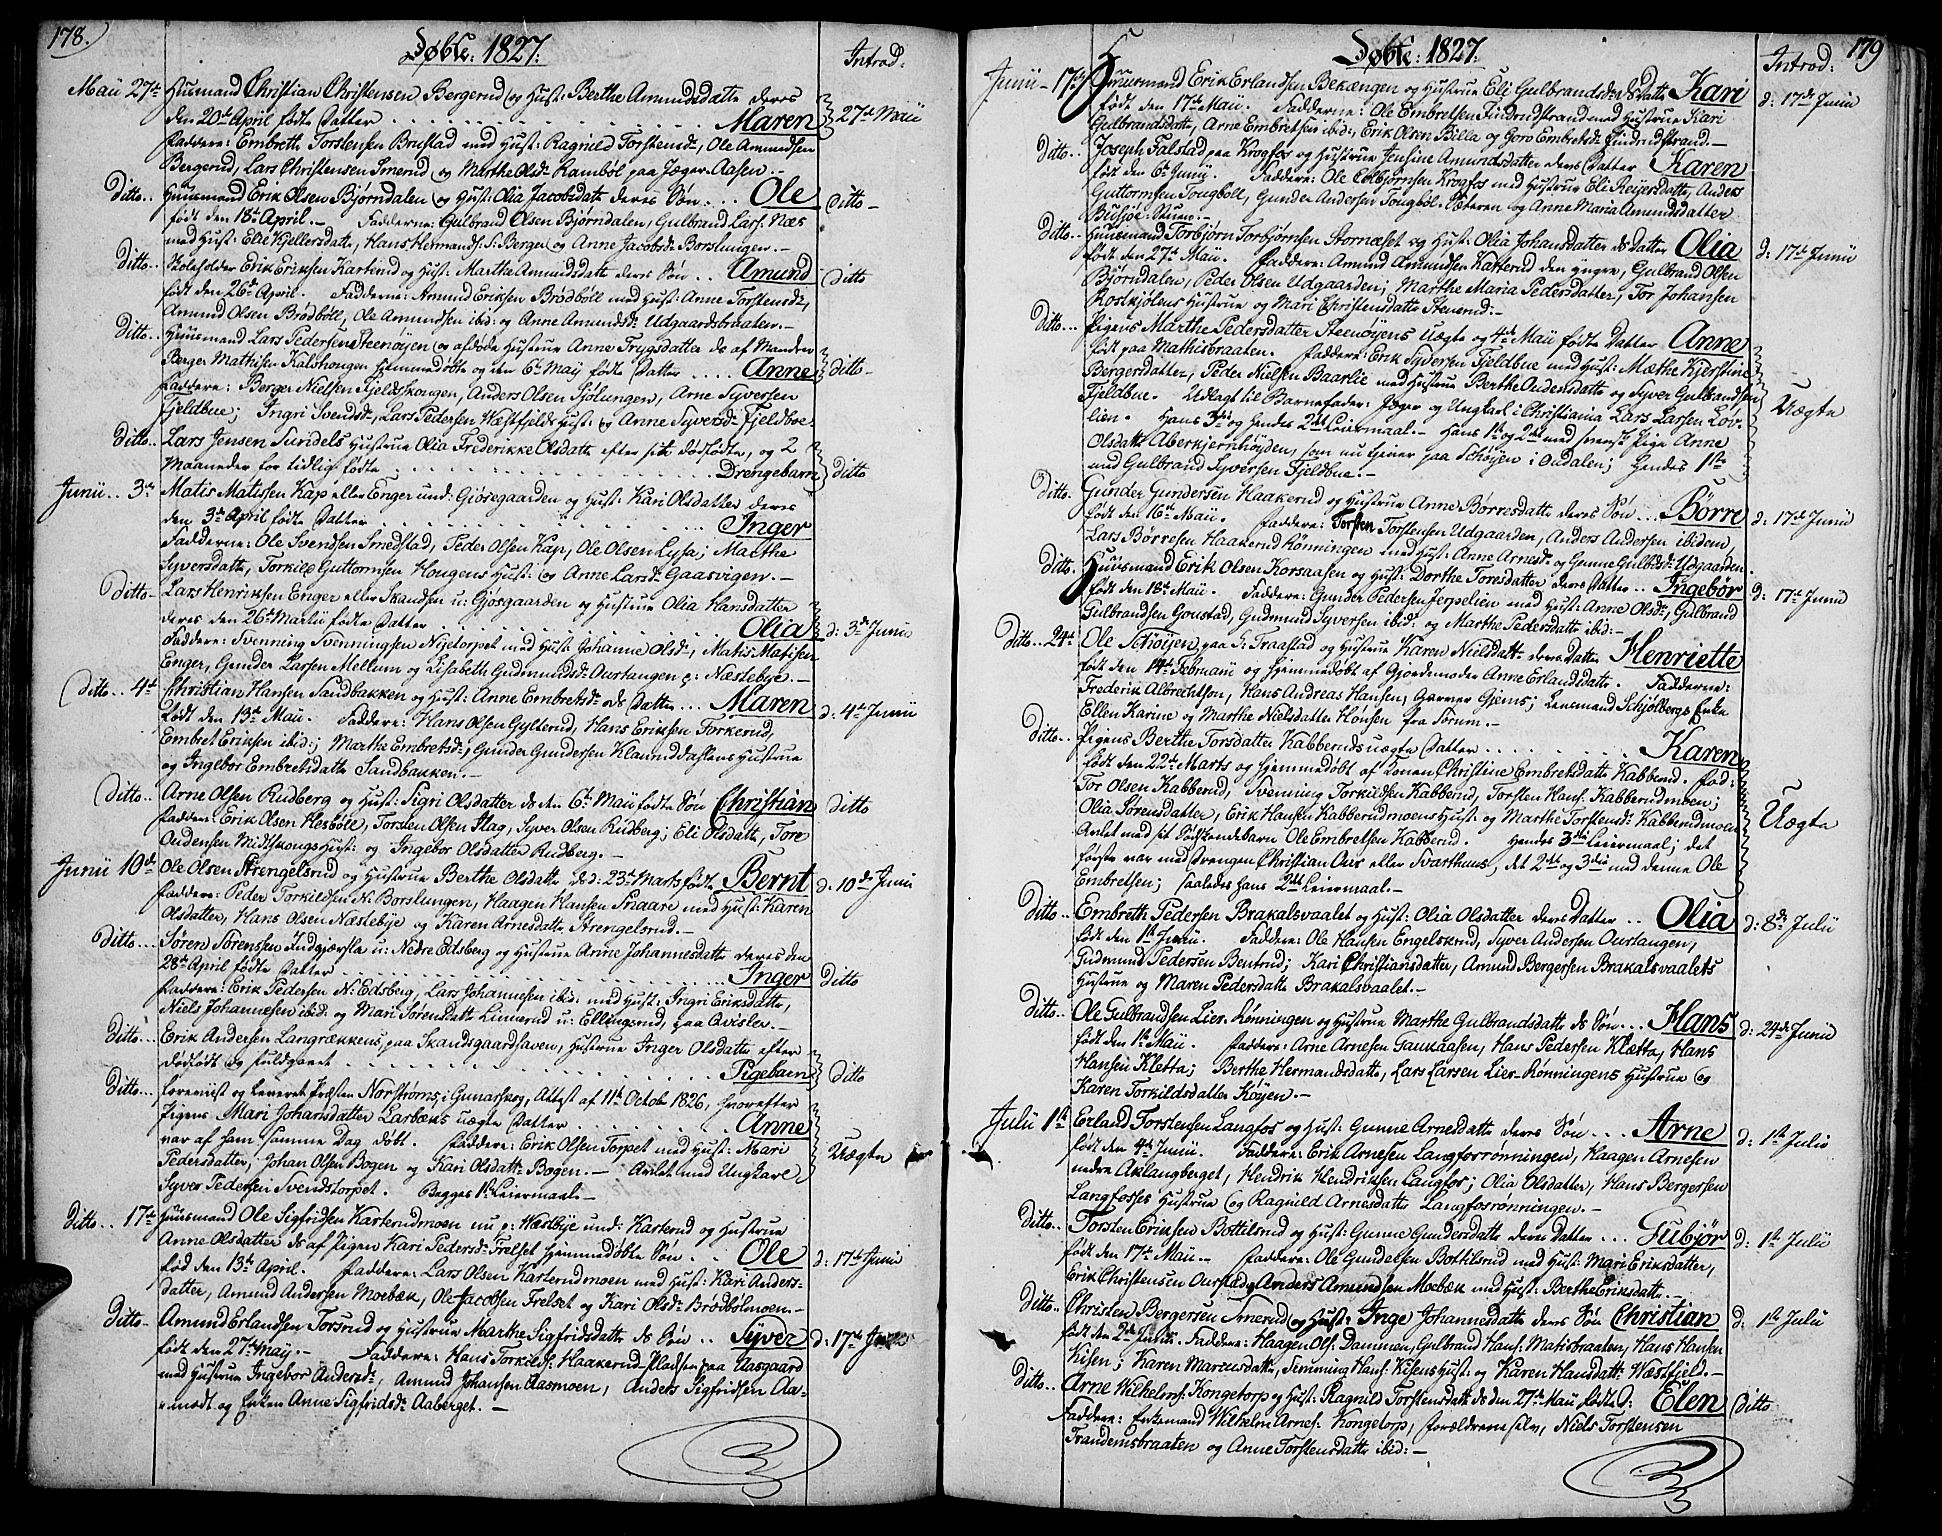 178.
Døbte: 1827.
Introd:
Maii 27de Huusmand Christian Christensen Bergerud og Hust: Berthe Amundsdatte deres
den 20de April fødte Datter . . . Maren 27de Maii
Faddere: Embreth Torstensen Brustad med Hust: Ragnild Torstensd:, Ole Amundsen
Bergerud, Lars Christensen Smerud og Marthe Olsd: Kamböl paa Jæger-Aasen.-
Ditto.. Huusmand Erik Olsen Björndalen og Hust: Olia Jacobsdatte deres Søn . . . Ole Ditto-
født den 18de April.- Fadderne: Gulbrand Olsen Björndalen, Gulbrand Lars: Næs
med Hust: Elie Kjellersdatte, Hans Hermands: S: Berger og Anne Jacobsd: Borslungen.-
Ditto.. Skoleholder Erik Eriksen Karterud og Hust: Marthe Amundsdatte deres Søn . . Amund Ditto
født den 26de April. Fadderne: Amund Eriksen Brødböll med Hust: Anne Torstensd:,
Amund Olsen Brødböll, Ole Amundsen ibid: og Anne Amundsd: Udgaardsbraaten.-
Ditto.. Huusmand Lars Pedersen Steenöyen og afdøde Hustrue Anne Trygsdatter ds af Manden
Berger Mathisen Kalshougen hjemmedøbte og den 6te Maij fødte Datter . . . . Anne Ditto-
Faddere: Berger Nielsen Fjeldskougen, Anders Olsen Sjölungen, Arne Syversen
Fjeldbue; Ingri Svendsd:, Lars Pedersen Wæstfjelds Hust: og Anne Syversd: Fjeldboe.
Ditto.. Lars Jensen Sundets Hustrue Olia Frederikke Olsdatte efter sit dødfødte, og 2
Maaneder for tidlig fødte . . . Drengebarn Ditto
Junii .. 3de Matis Matissen Kap eller Enger und: Gjösegaarden og Hust: Kari Olsdatter deres
den 3de April fødte Datter . . . Inger
Fadderne: Ole Svendsen Smedstad, Peder Olsen Kap, Ole Olsen Lysa; Marthe
Syversdatte, Torkild Guttormsen Hougens Hust: og Anne Larsd: Gaasvigen.-
Ditto- Lars Henriksen Enger eller Skandsen u: Gjösgaarden og Hustrue Olia Hansdatter
deres den 26de Martii fødte Datter . . . Olia d: 3de Junii
Faddere: Svenning Svenningsen Nijetorpet med Hust: Johanne Olsd:, Matis Matisen
Enger, Gunder Larsen Mellum og Lisabeth Gudmundsd: Ourtangen p: Næstebye.-
Ditto .. 4de Christian Hansen Sandbakken og Hust: Anne Embretsd: ds Datter . . . Maren d: 4de Junii
født den 13de Maii. Faddere: Hans Olsen Gylterud, Hans Eriksen Torkerud,
Embret Eriksen ibid:; Marthe Embretsd:, Gunder Gundersen Klanniddahlens Hustrue
og Ingebor Embretsdatte Sandbakken.-
Ditto.. Arne Olsen Rudberg og Hust: Sigri Olsdatter ds den 6te Maii fødte Søn Christian Ditto
Fadder: Erik Olsen Hesböll, Torsten Olsen Slag, Syver Olsen Rudberg; Eli Olsdatte, Tore
Audensen Midtskougs Hust: og Ingebor Olsdatter Rudberg.-
Junii 10de Ole Olsen Strengelsrud og Hustrue Berthe Olsdatte ds d: 23de Marts fødte Bernt d: 10de Junii
Faddere: Peder Torkildsen N: Borslungen, Haagen Hansen Snaare med Hust: Karen
Olsdatter, Hans Olsen Næstebye og Karen Arnesdatte Strengelsrud.-
Ditto... Søren Sørensen Indgjærsla u: Nedre Edsberg og Hustrue Anne Johannesdatte deres den
28de April fødte Datter . . . Inger Ditto
Faddere: Erik Pedersen N: Edsberg, Lars Johannesen ibid: med Hust: Ingri Eriksdatte,
Niels Johannesen ibid: og Mari Sørensdatte Linnerud u: Ellingsrud, paa Avislev.-
Ditto.. Erik Andersen Langrækkens paa Skandsgaardhaven, Hustrue Inger Olsdatte efter
dødfødt og fuldgaaet . . . Pigebarn Ditto
Ditto... foreviist og leveret Præsten Norströms i Gunarskog, Attest af 11te Octob 1826, hvorefter
Pigens Mari Johansdatter Larbæks uægte Datter . . . Anne
var af ham samme Dag døbt. Faddere: Erik Olsen Torpet med Hust: Mari
Pedersdatter, Johan Olsen Bogen og Kari Olsdatte Bogen.- Avlet med Ungkarl Uægte
Syver Pedersen Svendstorpet. Begges 1ste Leiermaal.-
Ditto .. 17de Huusmand Ole Sigfridsen Karterudmoen nu p: Wæstbye und: Karterud og Hustrue
Anne Olsdatter ds af Pigen Kari Pedersd: Frelset hjemmedøbte Søn . . Ole d: 17de Junii
fød den 13de April. Faddere: Lars Olsen Karterudmoen med Hust: Kari Anders-
datter, Amund Andersen Moebæk, Ole Jacobsen Frelset og Kari Olsd: Brødbölmoen.-
Ditto- Amund Erlandsen Torsrud og Hustrue Marthe Sigfridsdatte ds Søn .. Syver d: 17de Junii
født den 27de Maij.- Faddere: Hans Torkilds: Haakerud-Pladsen paa Aasgaard
med Hustrue Ingebor Andersd:, Amund Johansen Aasmoen, Anders Sigfridsen Aa-
modt og Enken Anne Sigfridsd: Aaberget.-
179
Døbte: 1827.
Introd:
Junii - 17de Huusmand Erik Erlandsen Bekængen og Hustrue Eli Gulbrandsd: ds Datte Kari d: 17de Junii
født den 17de Maii. Fadderne: Ole Embretsen Findrudstrand med Hustrue Kari
Gulbrandsdatte, Arne Embretsen ibid:, Erik Olsen Billa og Goro Embretsd: Findrudstrand.-
Ditto.. Joseph Falstad paa Krogfos og Hustrue Jensine Amundsdatter deres Datter Karen
født den 6te Junii. Faddere: Ole Colbjörnsen Krogfos med Hustrue Eli Reijersdatte, Anders
Guttormsen Tougböll, Gunder Andersen Tougböl-Sæteren og Anne Maria Amundsdatter
Busjoe-Stuen.-
Ditto.. Huusmand Torbjörn Torbjörnsen Stornæset og Hust: Olia Johansdatter ds Datter Olia d: 17de Junii
født den 27de Maii. Faddere: Amund Amundsen Katterud den yngre, Gulbrand Olsen
Björndalen, Peder Olsen Udgaarden; Marthe Maria Pedersdatter, Tor Johansen
Roskjölens Hustrue og Mari Christensdatte Stensrud.-
Ditto... Pigens Marthe Pedersdatter Steenöyens uægte og 4de Maii fødte Datter Anne
født paa Mathisbraaten. Faddere: Erik Syversen Fjeldbue med Hust: Mæthe Kjerstine
Bergersdatter, Peder Nielsen Baarlie med Hustrue Berthe Andersdatte og Syver Gulbrandsen
Fjeldbue. Udlagt til Barnefader: Jæger og Ungkarl i Christiania Lars Larsen Löv- Uægte
lien. Hans 3die og hendes 2det Leiermaal.- Hans 1ste og 2det med svensk Pige Anne
Olsdatte Aberkjernhöyden, som nu tjener paa Schöyen i Oudalen; Hendes 1ste
med Gulbrand Syversen Fjeldbue.-
Ditto. Gunder Gundersen Haakerud og Hustrue Anne Börresdatte deres Søn . . . Börre d: 17de Junii
født den 16de Maii. Faddere: Torsten Torstensen Udgaarden, Anders Andersen ibidem,
Lars Börresen Haakerud-Rönningen med Hust: Anne Arnesd: og Gunne Gulbrd: Udgaarden.
Ditto. Huusmand Erik Olsen Korsaasen og Hust: Dorthe Toresdatter deres Datter .. Ingebør d: 17de Junii
født den 18de Maii. Faddere: Gunder Pedersen Jerpelien med Hust: Anne Olsd:, Gulbrand
Gulbrandsen Goustad, Gudmund Syversen ibid: og Marthe Pedersdatte ibid:-
Ditto.. 24de Ole Schöijen paa S: Fraastad og Hustrue Karen Nielsdatte deres Datter Henriette
født den 14de Februarii og hjemmedøbt af Gjordemoder Anne Erlandsdatte. Fadderne:
Frederik Albrechtson, Hans Andreas Hansen, Garver Gjems; Lensmand Schjölbergs Enke
Ellen Karine og Marthe Nielsdatter Hönsen fra Sörum.-
Ditto.. Pigens Berthe Torsdatter Kabberuds uægte Datter . . . Karen
født den 22de Marts og hjemmedøbt af Konen Christine Embretsdatte Kabberud. Fad:
Tor Olsen Kabberud, Svenning Torkildsen Kabberud, Torsten Hans: Kabberudmoen;
Olia Sorensdatter, Erik Hansen Kabberudmoens Hust: og Marthe Torstensd: Kabberudmoen Uægte
Avlet med sit Södskendebarn Ole Embretsen Kabberud. Hendes 3die Leiermaal; det
første var med Drengen Christian Our eller Svarthuus, det 2det og 3die med denne Ole
Embretsen; saaledes hans 2det Leiermaal.-
Ditto.. Embreth Pedersen Brakalsvaalet og Hust: Olia Olsdatter deres Datter .. Olia d: 8de Julii
født den 1ste Junii. Faddere: Ole Hansen Engelsrud, Syver Andersen Ourtangen,
Gudmund Pedersen Bentrud; Kari Christiansdatter, Amund Bergersen Brakalsvaalets
Hustrue og Maren Pedersdatte Brakalsvaalet.-
Ditto.. Ole Gulbrandsen Lier-Rönningen og Hustrue Marthe Gulbrandsdatte ds Søn . . . Hans d: 24de Junii
født den 1ste Maii. Faddere: Arne Arnesen Gaukaasen, Hans Pedersen Klætta, Hans
Hansen Kletta; Berthe Hermandsdatte, Lars Larsen Lier-Rönningens Hustrue og
Karen Torkildsdatter Köyen.-
Julii 1ste Erland Torstensen Langfos og Hust: Gunne Arnesdatte deres Søn . . . Arne d: 1ste Julii
født den 4de Junii. Faddere: Erik Arnesen Langfosrönningen, Haagen Arnesen
nedre Aklangberget, Hendrik Hendriksen Langfos; Olia Olsdatter, Hans Bergersen
Langfosses Hustrue og Ragnild Arnesdatte Langfosrönningen.-
Ditto.. Torsten Eriksen Bottilsrud og Hust: Gunne Gundersdatte deres Datter . . . Gubjör d: 1ste Julii
født den 17de Maii. Faddere: Ole Gundelsen Bottilsrud med Hust: Mari Eriksdatter,
Erik Christensen Ourstad, Anders Amundsen Moebæk med Hust: Berthe Eriksdatte.-
Ditto.. Christen Bergersen Smerud og Hust: Inge Johannesdatte deres Søn Christian d: 1ste Julii
født den 2de Junii. Faddere: Haagen Ols: Dammen, Gulbrand Hans: Matisbraaten, Hans Hansen
Kisen; Karen Marcusdatte, Svenning Hans: Kisens Hust: og Karen Hansdatt: Wæstfjeld.-
Ditto.. Arne Wilhelms: Kongetorp og Hust: Ragnild Torstensdatt ds den 27de Maii fødte D: Elen Ditto
Faddere: Enkemand Wilhelm Arnes: Kongetorp, Forældrene selv, Niels Torstensen
Trandemsbraaten og Anne Torstensdatte ibid:-